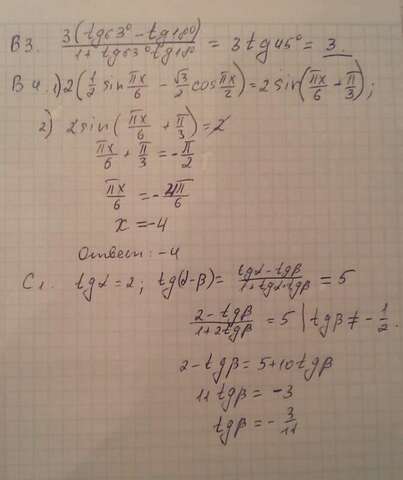 В3. 3(tg63° - tg18°) / 1 + tg63° tg18° = 3tg45° = 3.
В4. 1) 2(1/2 sin πx/6 - √3/2 cos πx/2) = 2sin(πx/6 + π/3);
2) 2sin(πx/6 + π/3) = 2
πx/6 + π/3 = - π/2
πx/6 = - 4π/6
x = -4
Ответ: -4
С1. tgα = 2; tg(α-β) = tgα - tgβ / 1 + tgα·tgβ = 5
2 - tgβ / 1 + 2tgβ = 5 | tgβ ≠ - 1/2.
2 - tgβ = 5 + 10tgβ
11tgβ = -3
tgβ = - 3/11